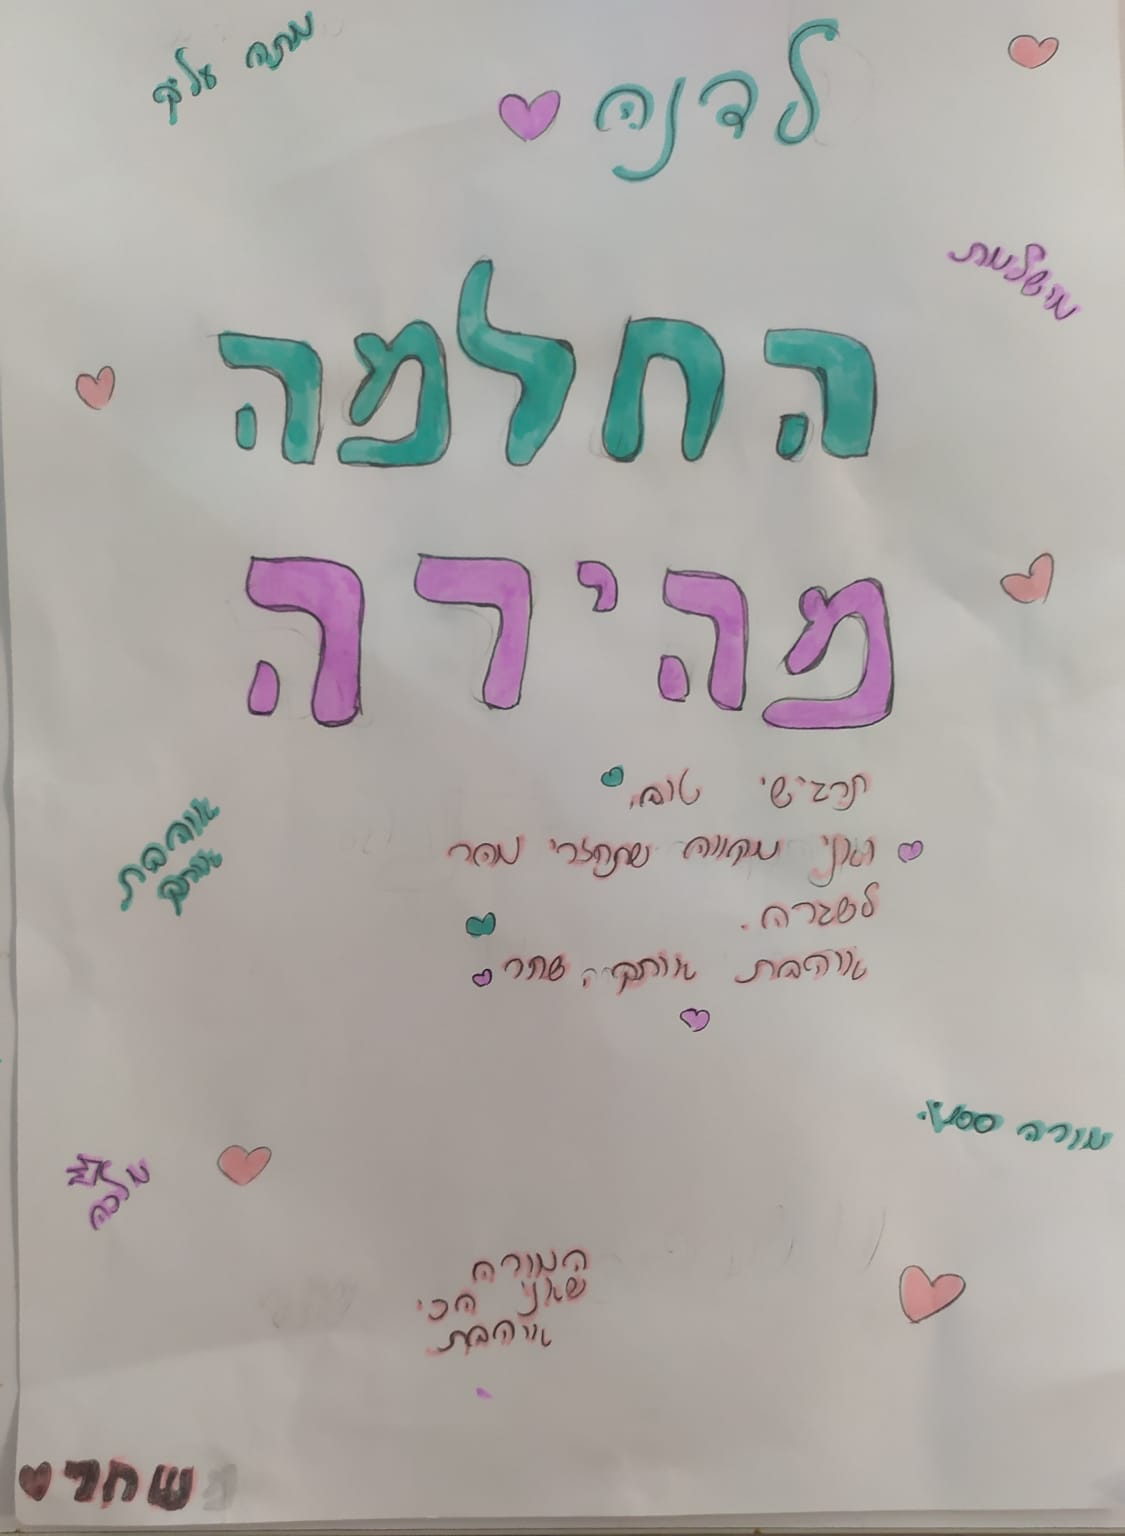 לדנה
מתה עליך
מושלמת
החלמה
מהירה
תרגישי טוב,
ואני מקווה שתחזרי מהר
לשגרה.
אוהבת אותך, שחר
אוהבת
אותך
מורה
מלכה
המורה
שאני הכי
אוהבת
שחר